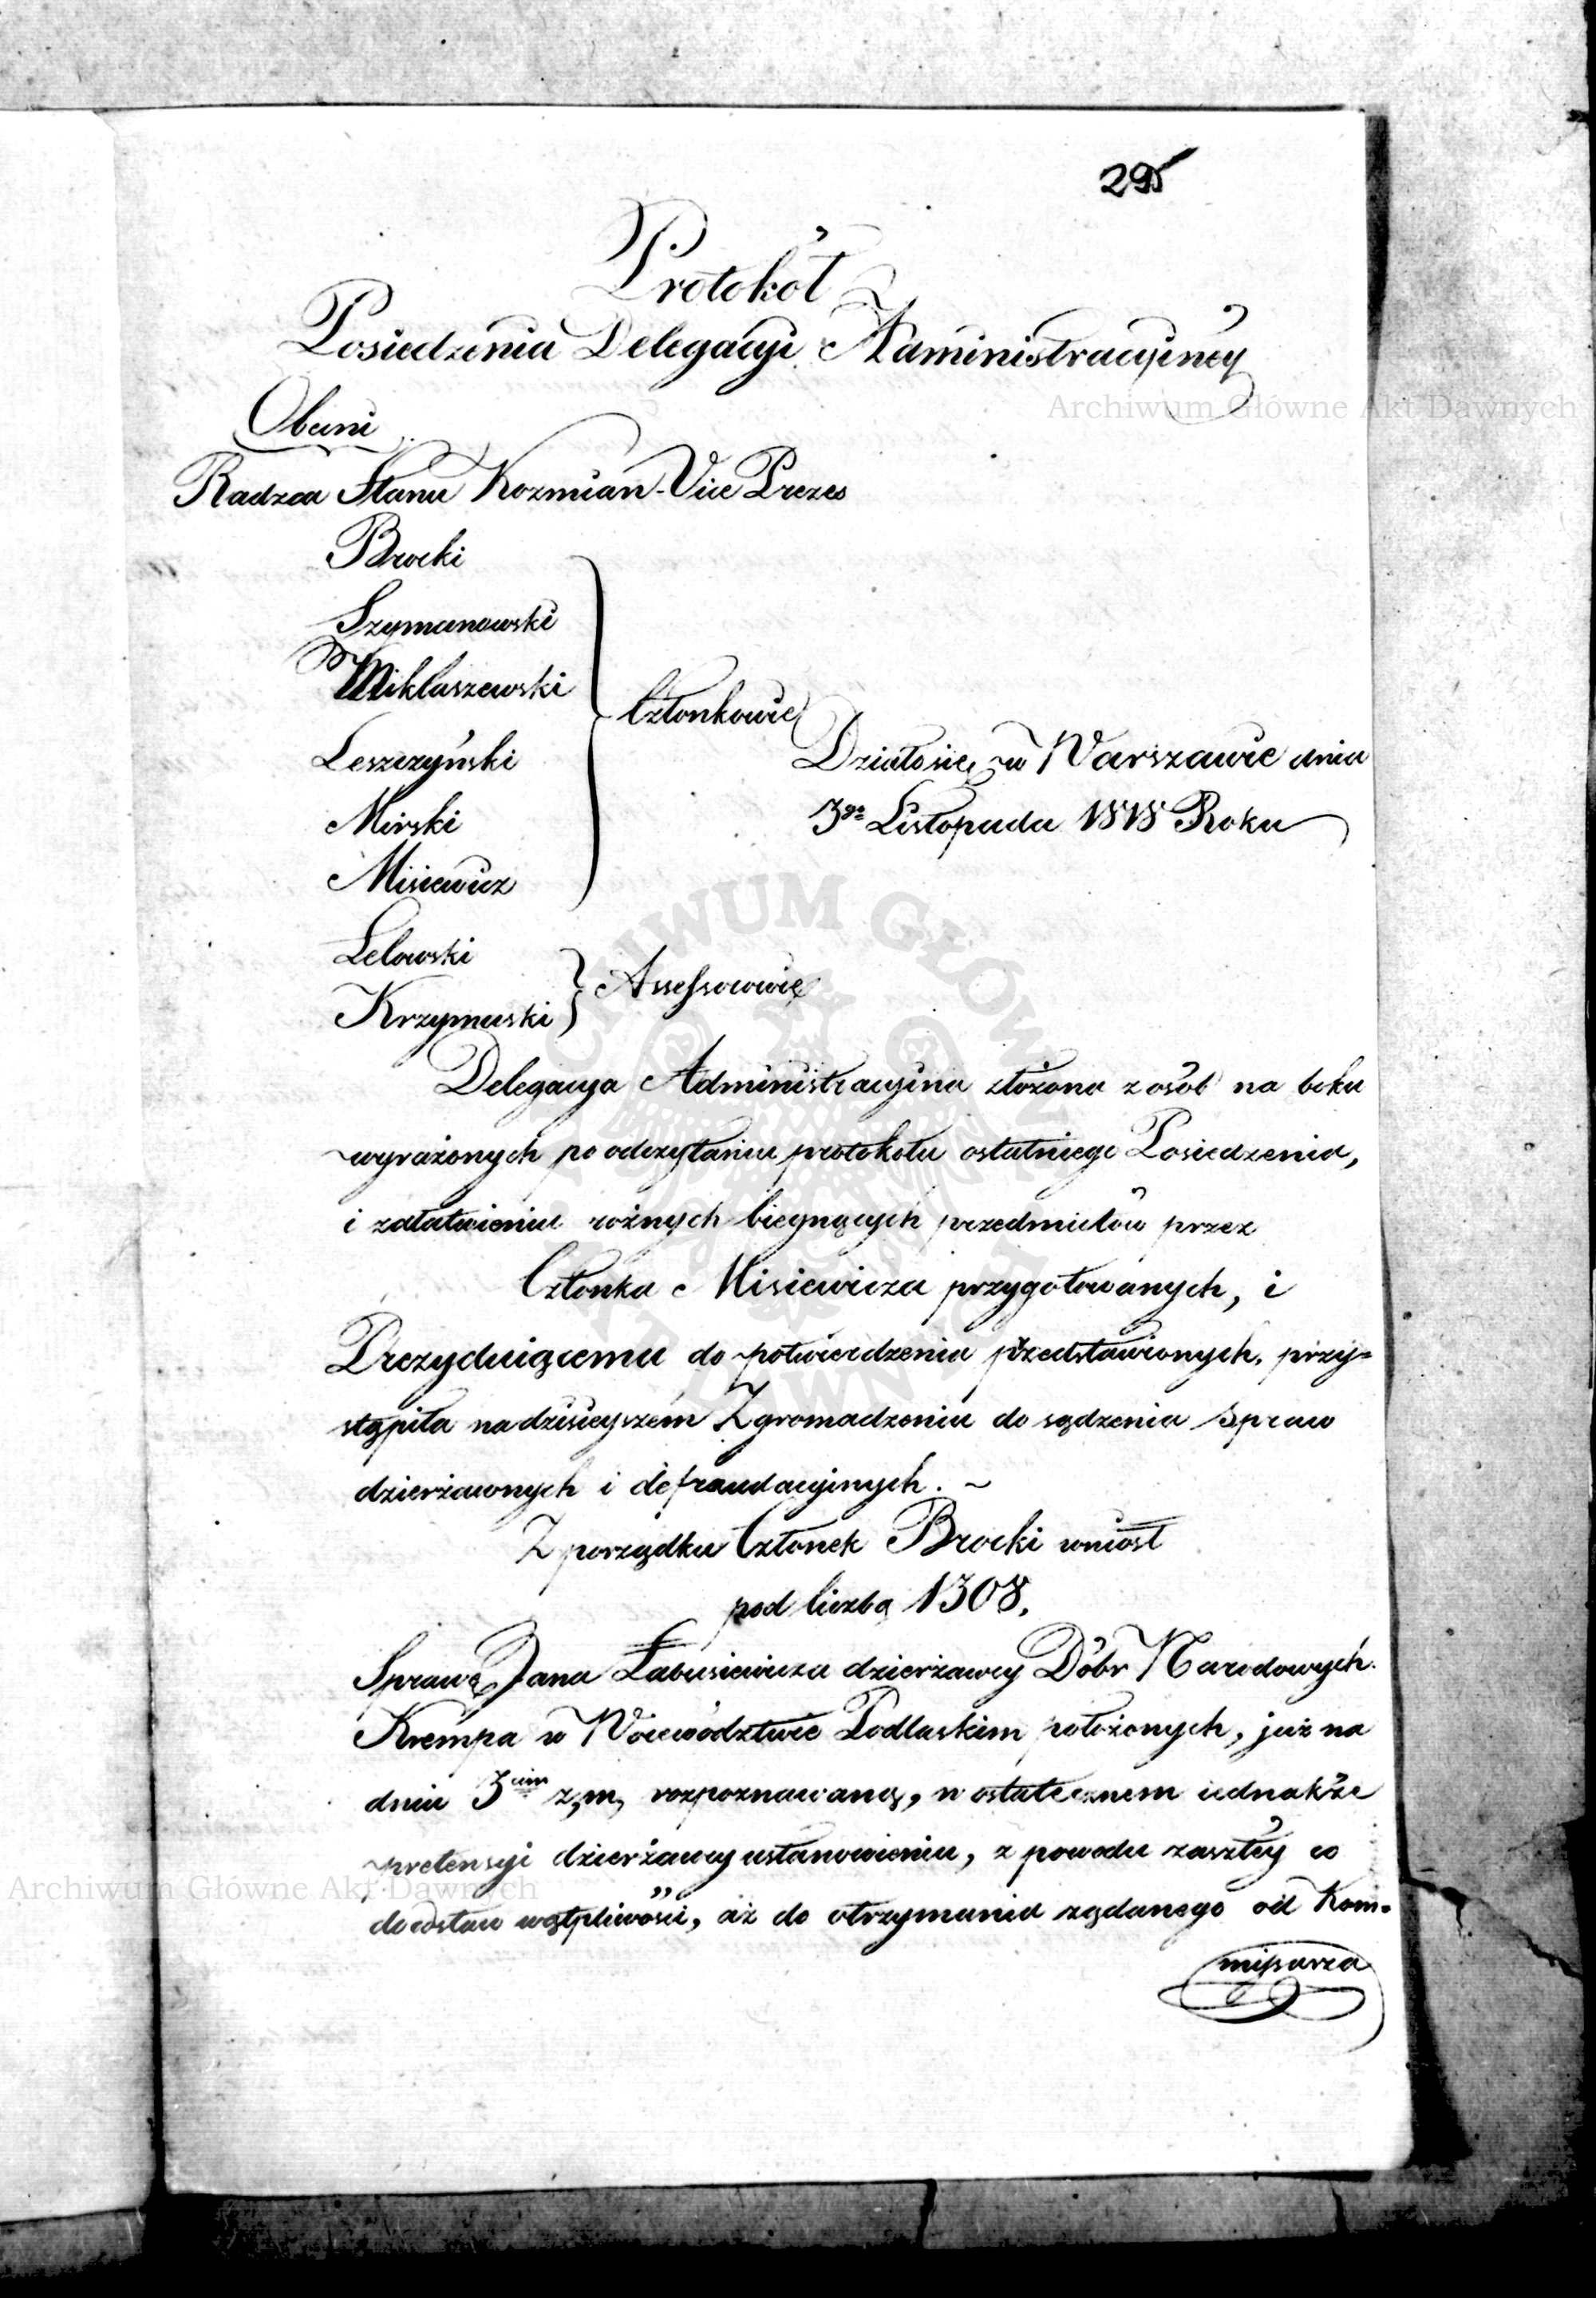 295
Protokół
Posiedzenia Delegacyi Administracyiney
Obecni
Radzca Stanu Kozmian Vice Prezes
Brocki
Szymanowski
Miklaszewski
Leszczyński
Mirski
Misiewicz
Członkowie
Działo się w Warszawie dnia
3go Listopada 1818 Roku
Lelowski
Krzymuski
Assessorowie
Delegacya Administracyina złożona z osób na boku
wyrażonych po odczytaniu protokołu ostatniego Posiedzenia,
i załatwieniu rożnych biegnących przedmiotów przez
Członka Misiewicza przygotowanych, i
Prezyduiącemu do potwierdzenia przedstawionych, przy=
stąpiła na dzisieyszem Zgromadzeniu do sądzenia Spraw
dzierżawnych i defraudacyinych. ~
Z porządku Członek Brocki wniosł
pod liczbą 1308.
Sprawę Jana Łabusiewicza dzierżawcy Dóbr Narodowych
Krempa w Woiewództwie Podlaskim położonych, już na
dniu 3cim z. m. rozpoznawaną, w ostatecznem iednakże
pretensyi dzierżawcy ustanowieniu, z powodu zaszłey co
do dostaw wątpliwości, aż do otrzymania żądanego od Kom=
missarza
Archiwum Główne Akt Dawnych
Archiwum Główne Akt Dawnych
ARCHIWUM GŁÓWNE AKT DAWNYCH